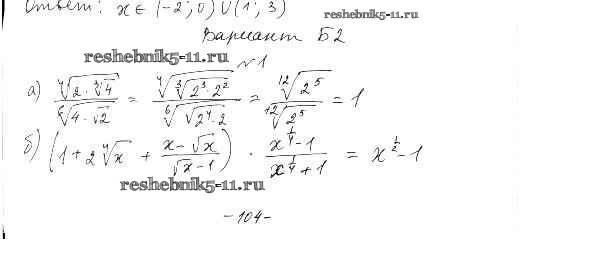 Ответ: x ∈ (-2; 0) ∪ (1; 3)
reshebnik5-11.ru
Вариант Б2
reshebnik5-11.ru
№1
а) ∜(2·∛4) / ⁶√(4·√2) = ∜(∛(2³·2²)) / ⁶√(√(2⁴·2)) = ¹²√(2⁵) / ¹²√(2⁵) = 1
б) (1 + 2∜x + (x - √x)/(√x - 1)) · (x^(1/4) - 1)/(x^(1/4) + 1) = x^(1/2) - 1
reshebnik5-11.ru
-104-